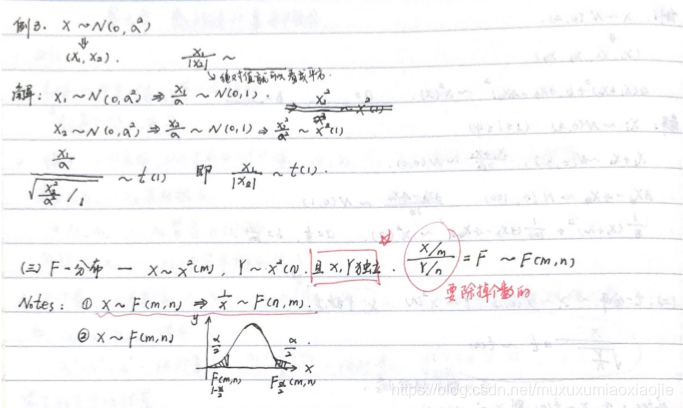 例3. X ~ N(0, a²)
⇓
(X₁, X₂). X₁/|X₂| ~
↳ 绝对值就可以看成平方.
解: X₁ ~ N(0, a²) ⇒ X₁/a ~ N(0,1) . ⇒ X₁²/a² ~ X²(1)
X₂ ~ N(0, a²) ⇒ X₂/a ~ N(0,1) ⇒ X₂²/a² ~ X²(1)
(X₁/a)/√(X₂²/a² /1) ~ t(1) 即 X₁/|X₂| ~ t(1).
(三) F-分布 — X ~ X²(m), Y ~ X²(n). 且X,Y独立. (X/m)/(Y/n) = F ~ F(m,n)
要除掉个数的
Notes: ① X ~ F(m,n) ⇒ 1/X ~ F(n,m).
② X ~ F(m,n)
y
α/2 α/2
x
F(m,n) 1-α/2 F α/2 (m,n)
https://blog.csdn.net/muxuxumiaoxiaojie